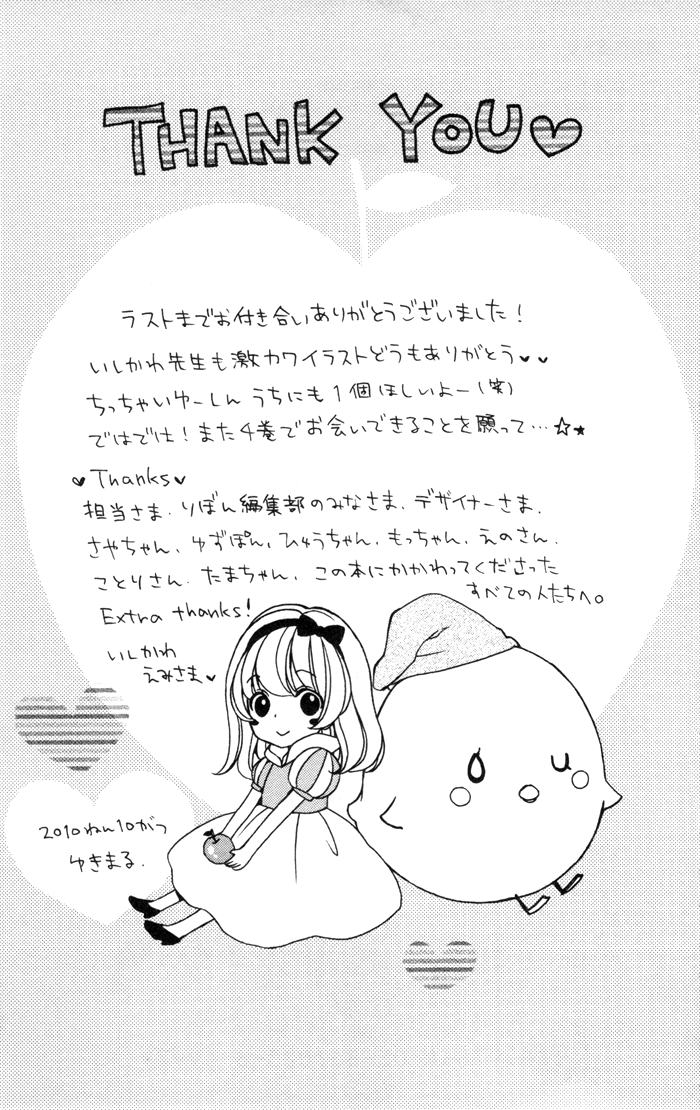 THANK YOU♥
ラストまでお付き合いありがとうございました!
いしかわ先生も激カワイラストどうもありがとう♥♥
ちっちゃいゆーしん うちにも1個ほしいよー(笑)
ではでは!また4巻でお会いできることを願って…☆★
♥Thanks♥
担当さま、りぼん編集部のみなさま、デザイナーさま、
さやちゃん、ゆずぽん、ひゅうちゃん、もっちゃん、えのさん、
ことりさん、たまちゃん、この本にかかわってくださった
すべての人たちへ。
Extra thanks!
いしかわ
えみさま♥
2010ねん10がつ
ゆきまる.